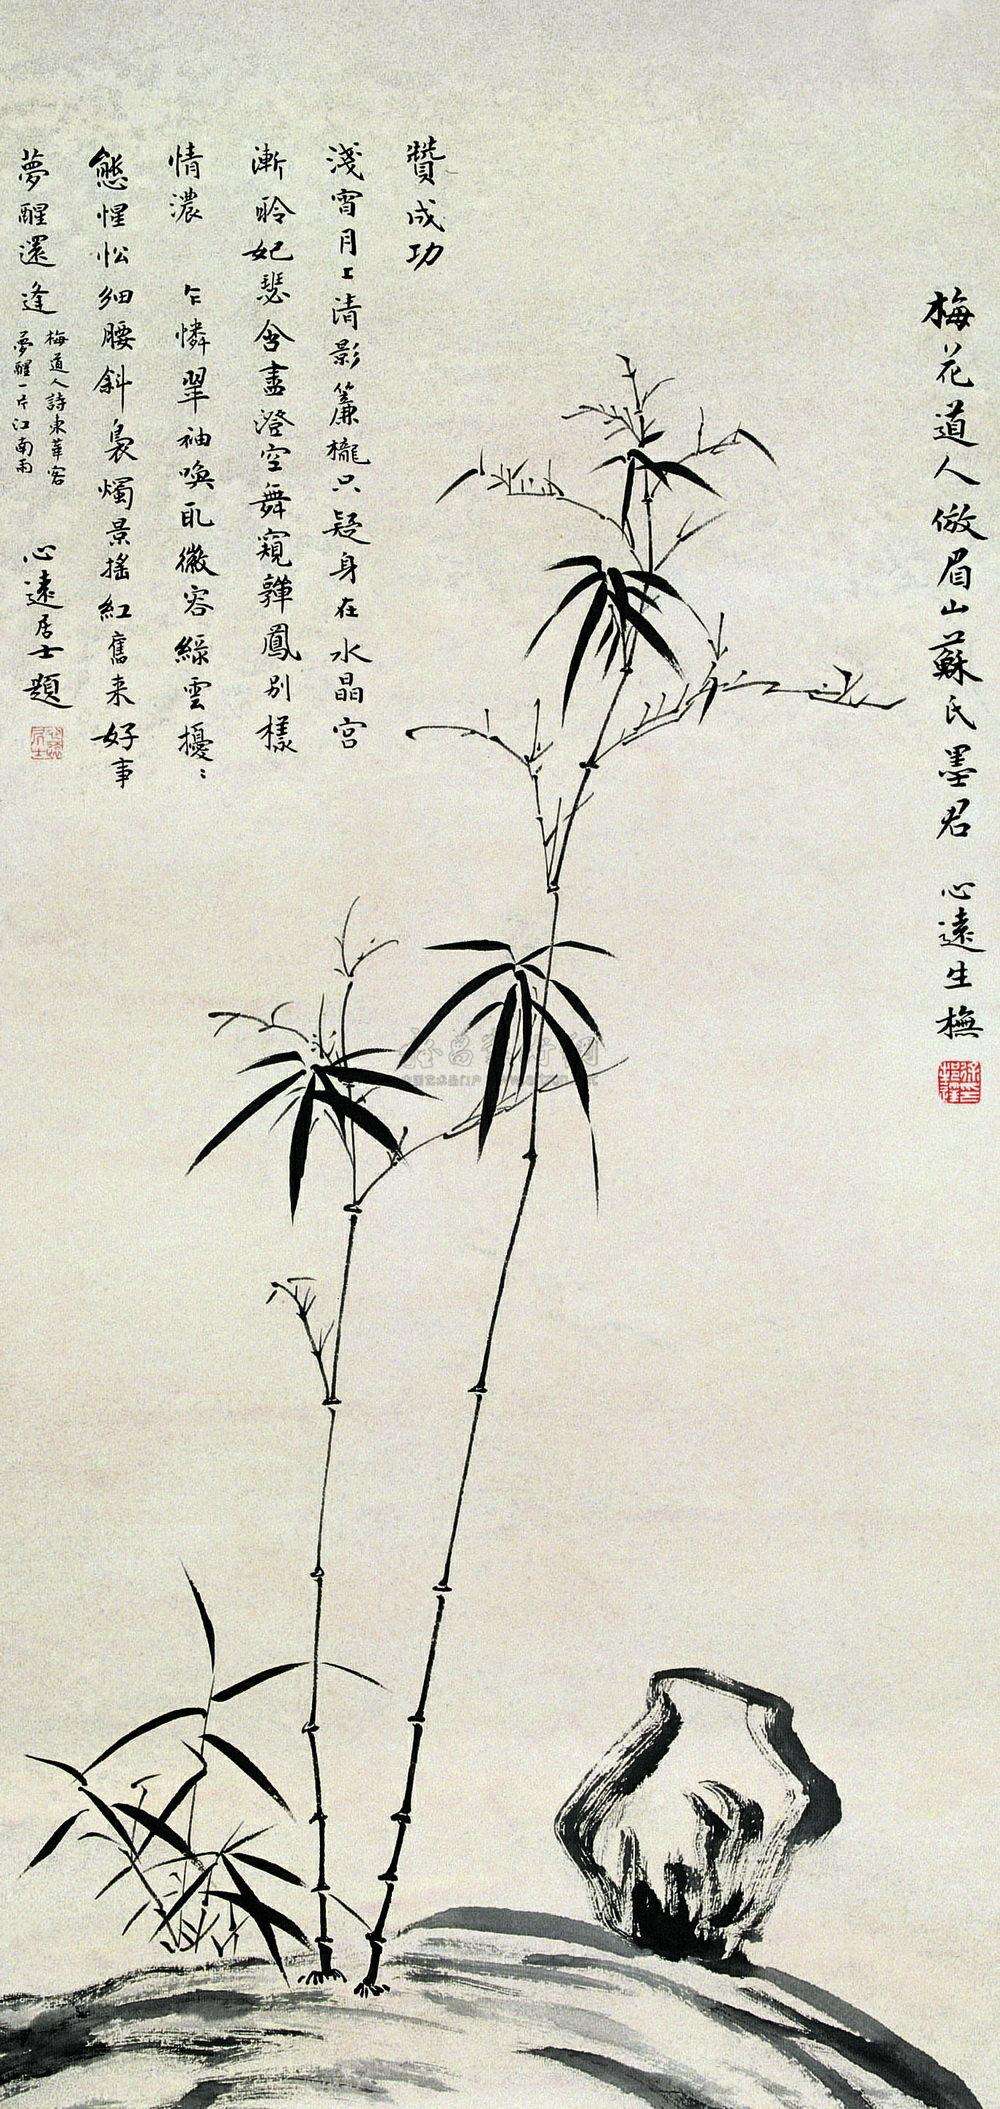 梅花道人倣眉山蘇氏墨君 心遠生橅
贊成功
淺宵月上清影簾櫳只疑身在水晶宮
漸聆妃瑟含盡澄空舞窺鸞鳳別樣
情濃 乍憐翠袖喚瓦微容綠雲擾〻
態惺忪細腰斜裊燭景搖紅舊来好事
夢醒還逢
梅道人詩東華客
夢醒一片江南雨
心遠居士題